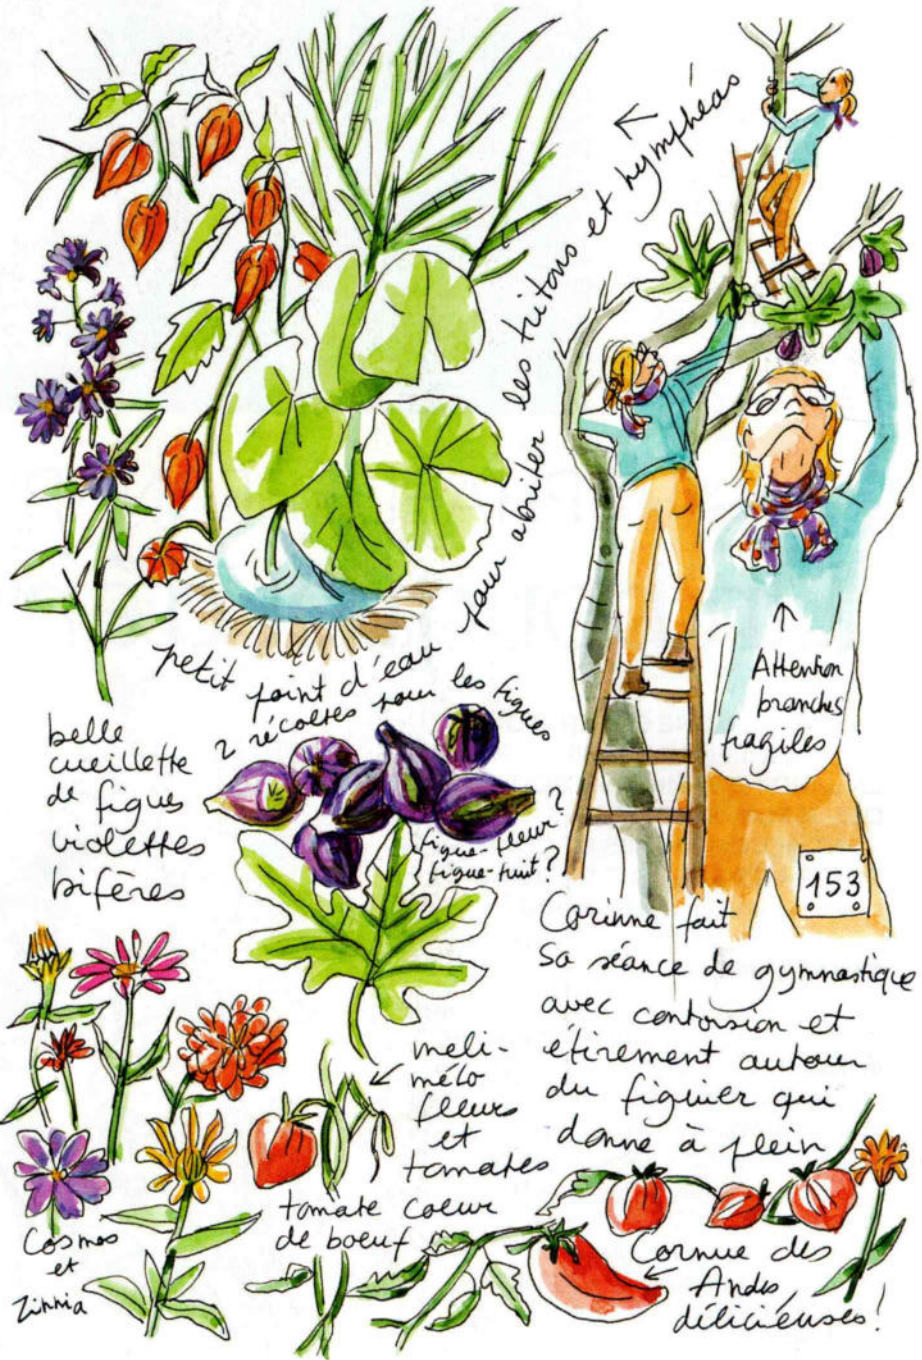 petit point d'eau pour abriter les tritons et nymphéas
2 récoltes pour les figues
belle
cueillette
de figues
violettes
bifères
figue-fleur?
figue-fruit?
2
Attention
branches
fragiles
153
Corinne fait
sa séance de gymnastique
avec contorsion et
étirement autour
du figuier qui
donne à plein
meli-
mélo
fleurs
et
tomates
tomate coeur
de boeuf
Cosmos
et
Zinnia
Cornue des
Andes
déliciéuses!